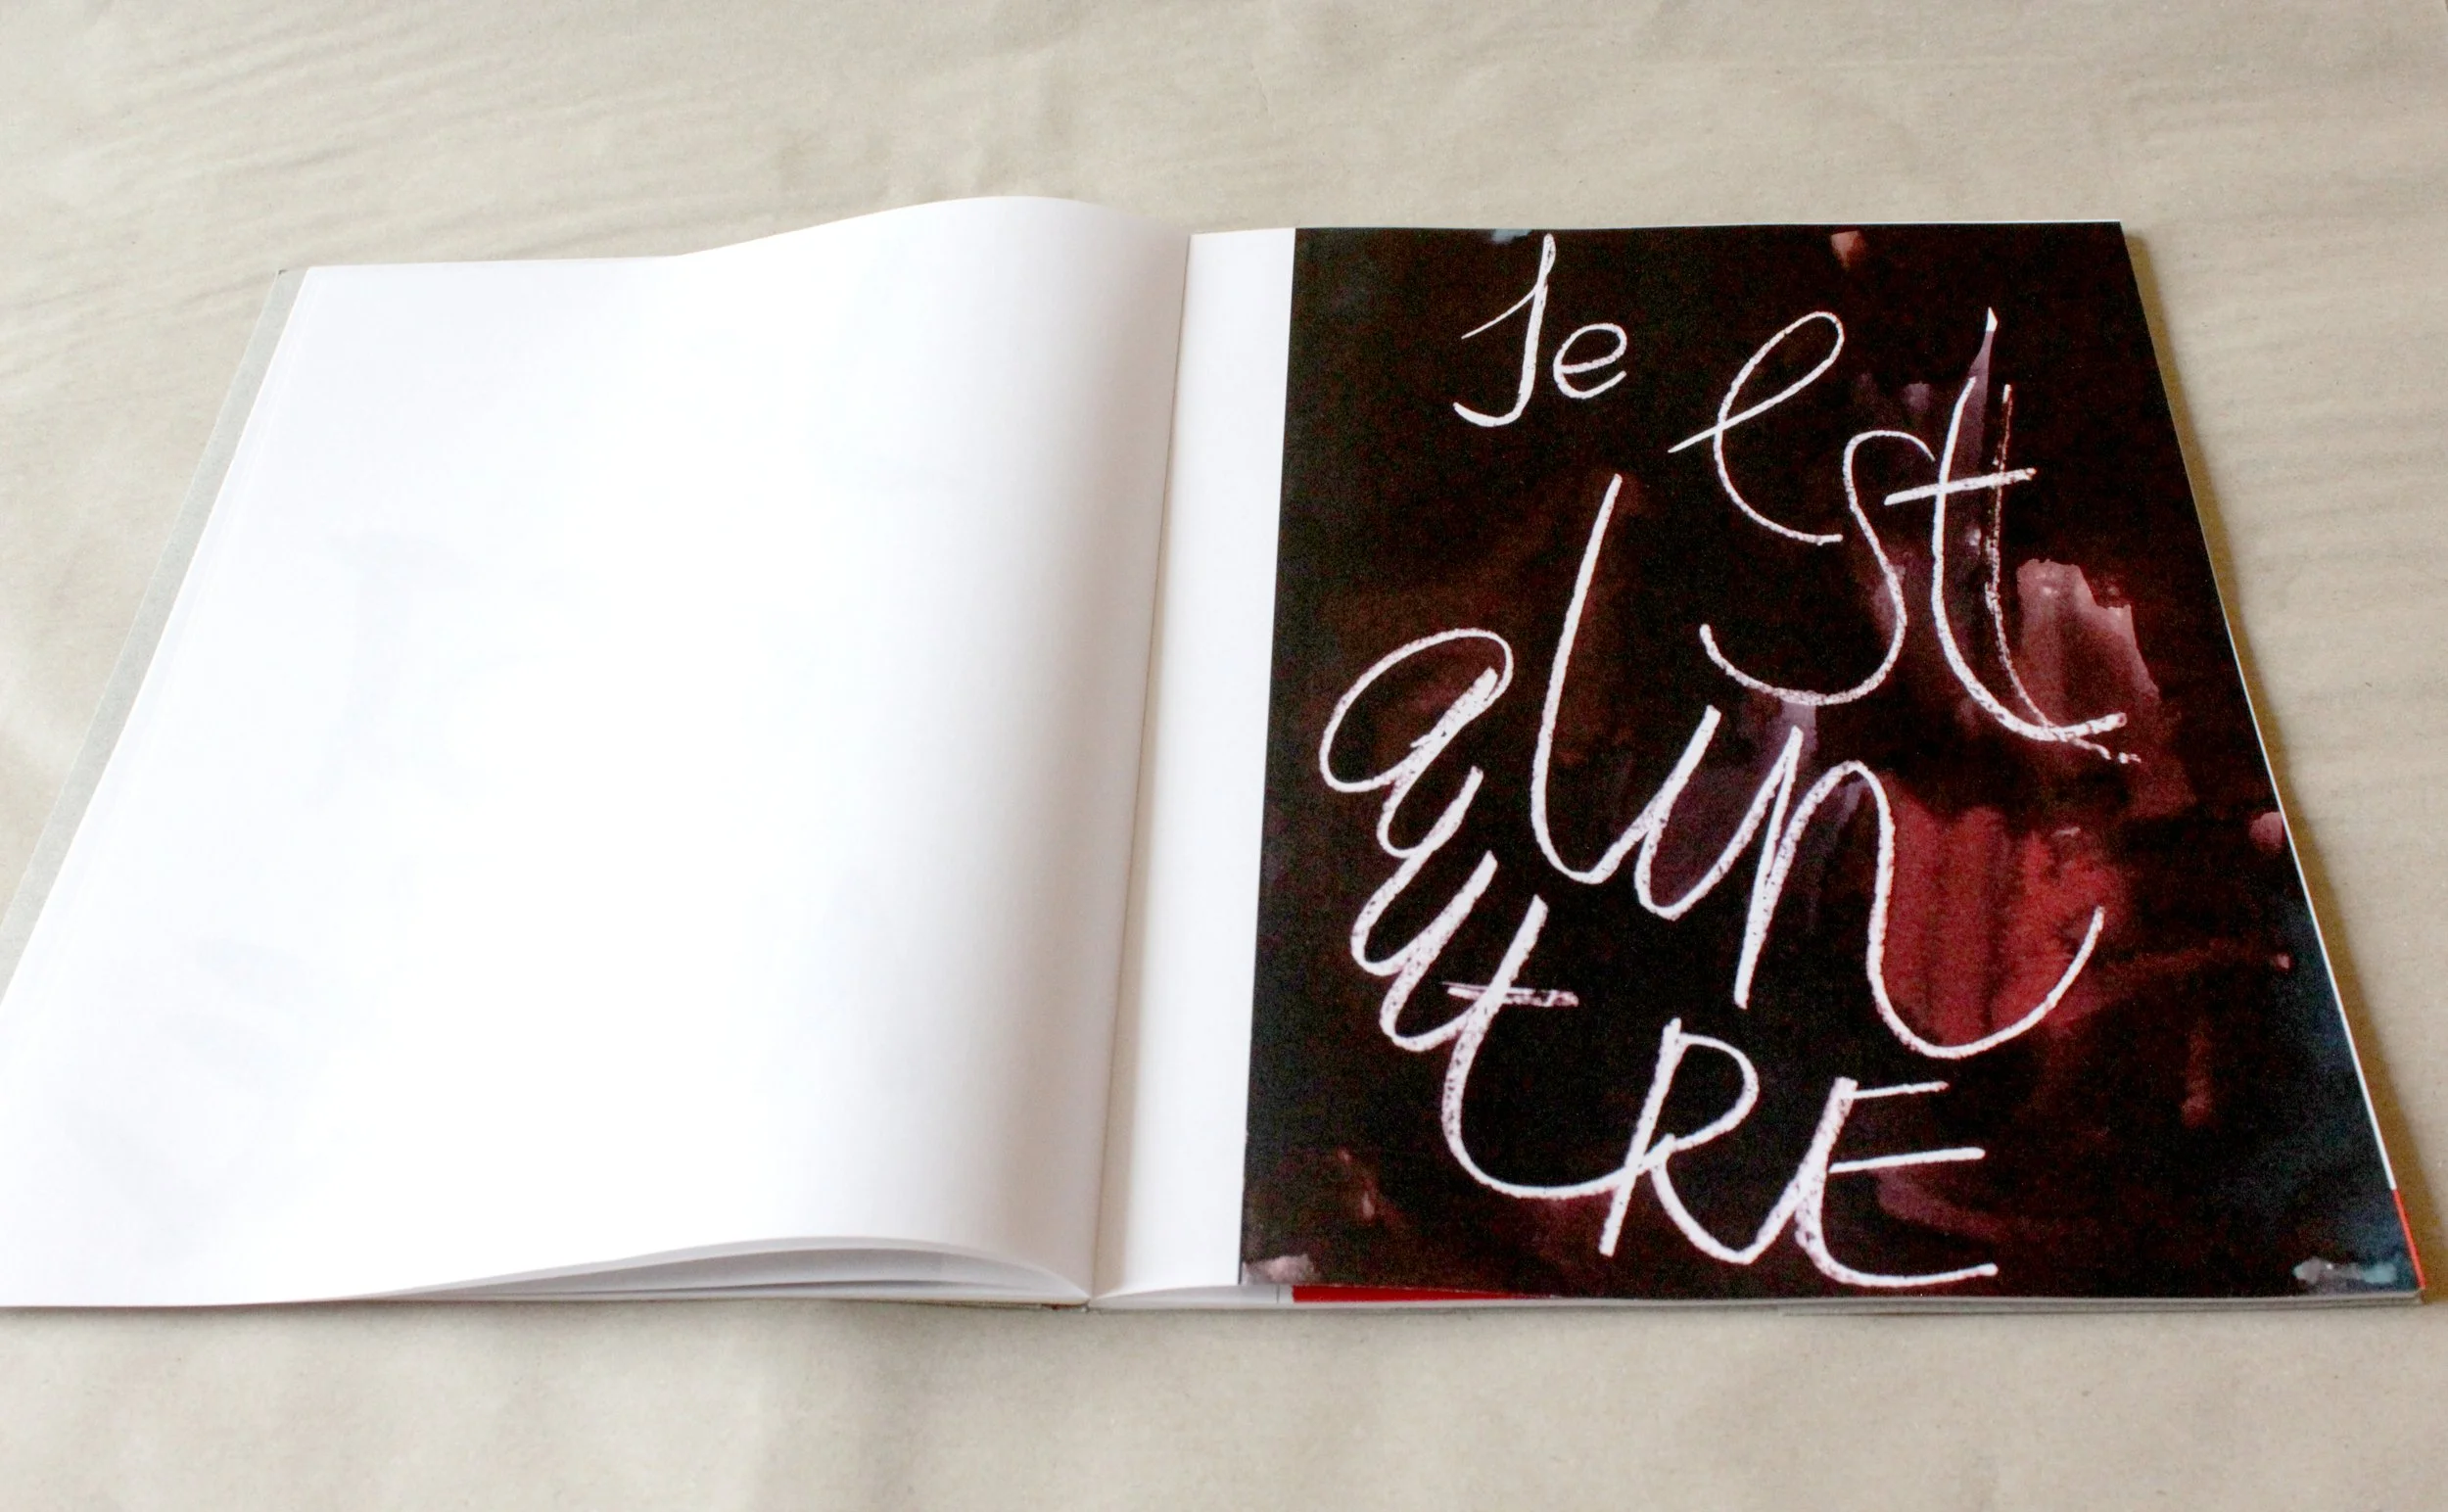 Je
est
un
autRE